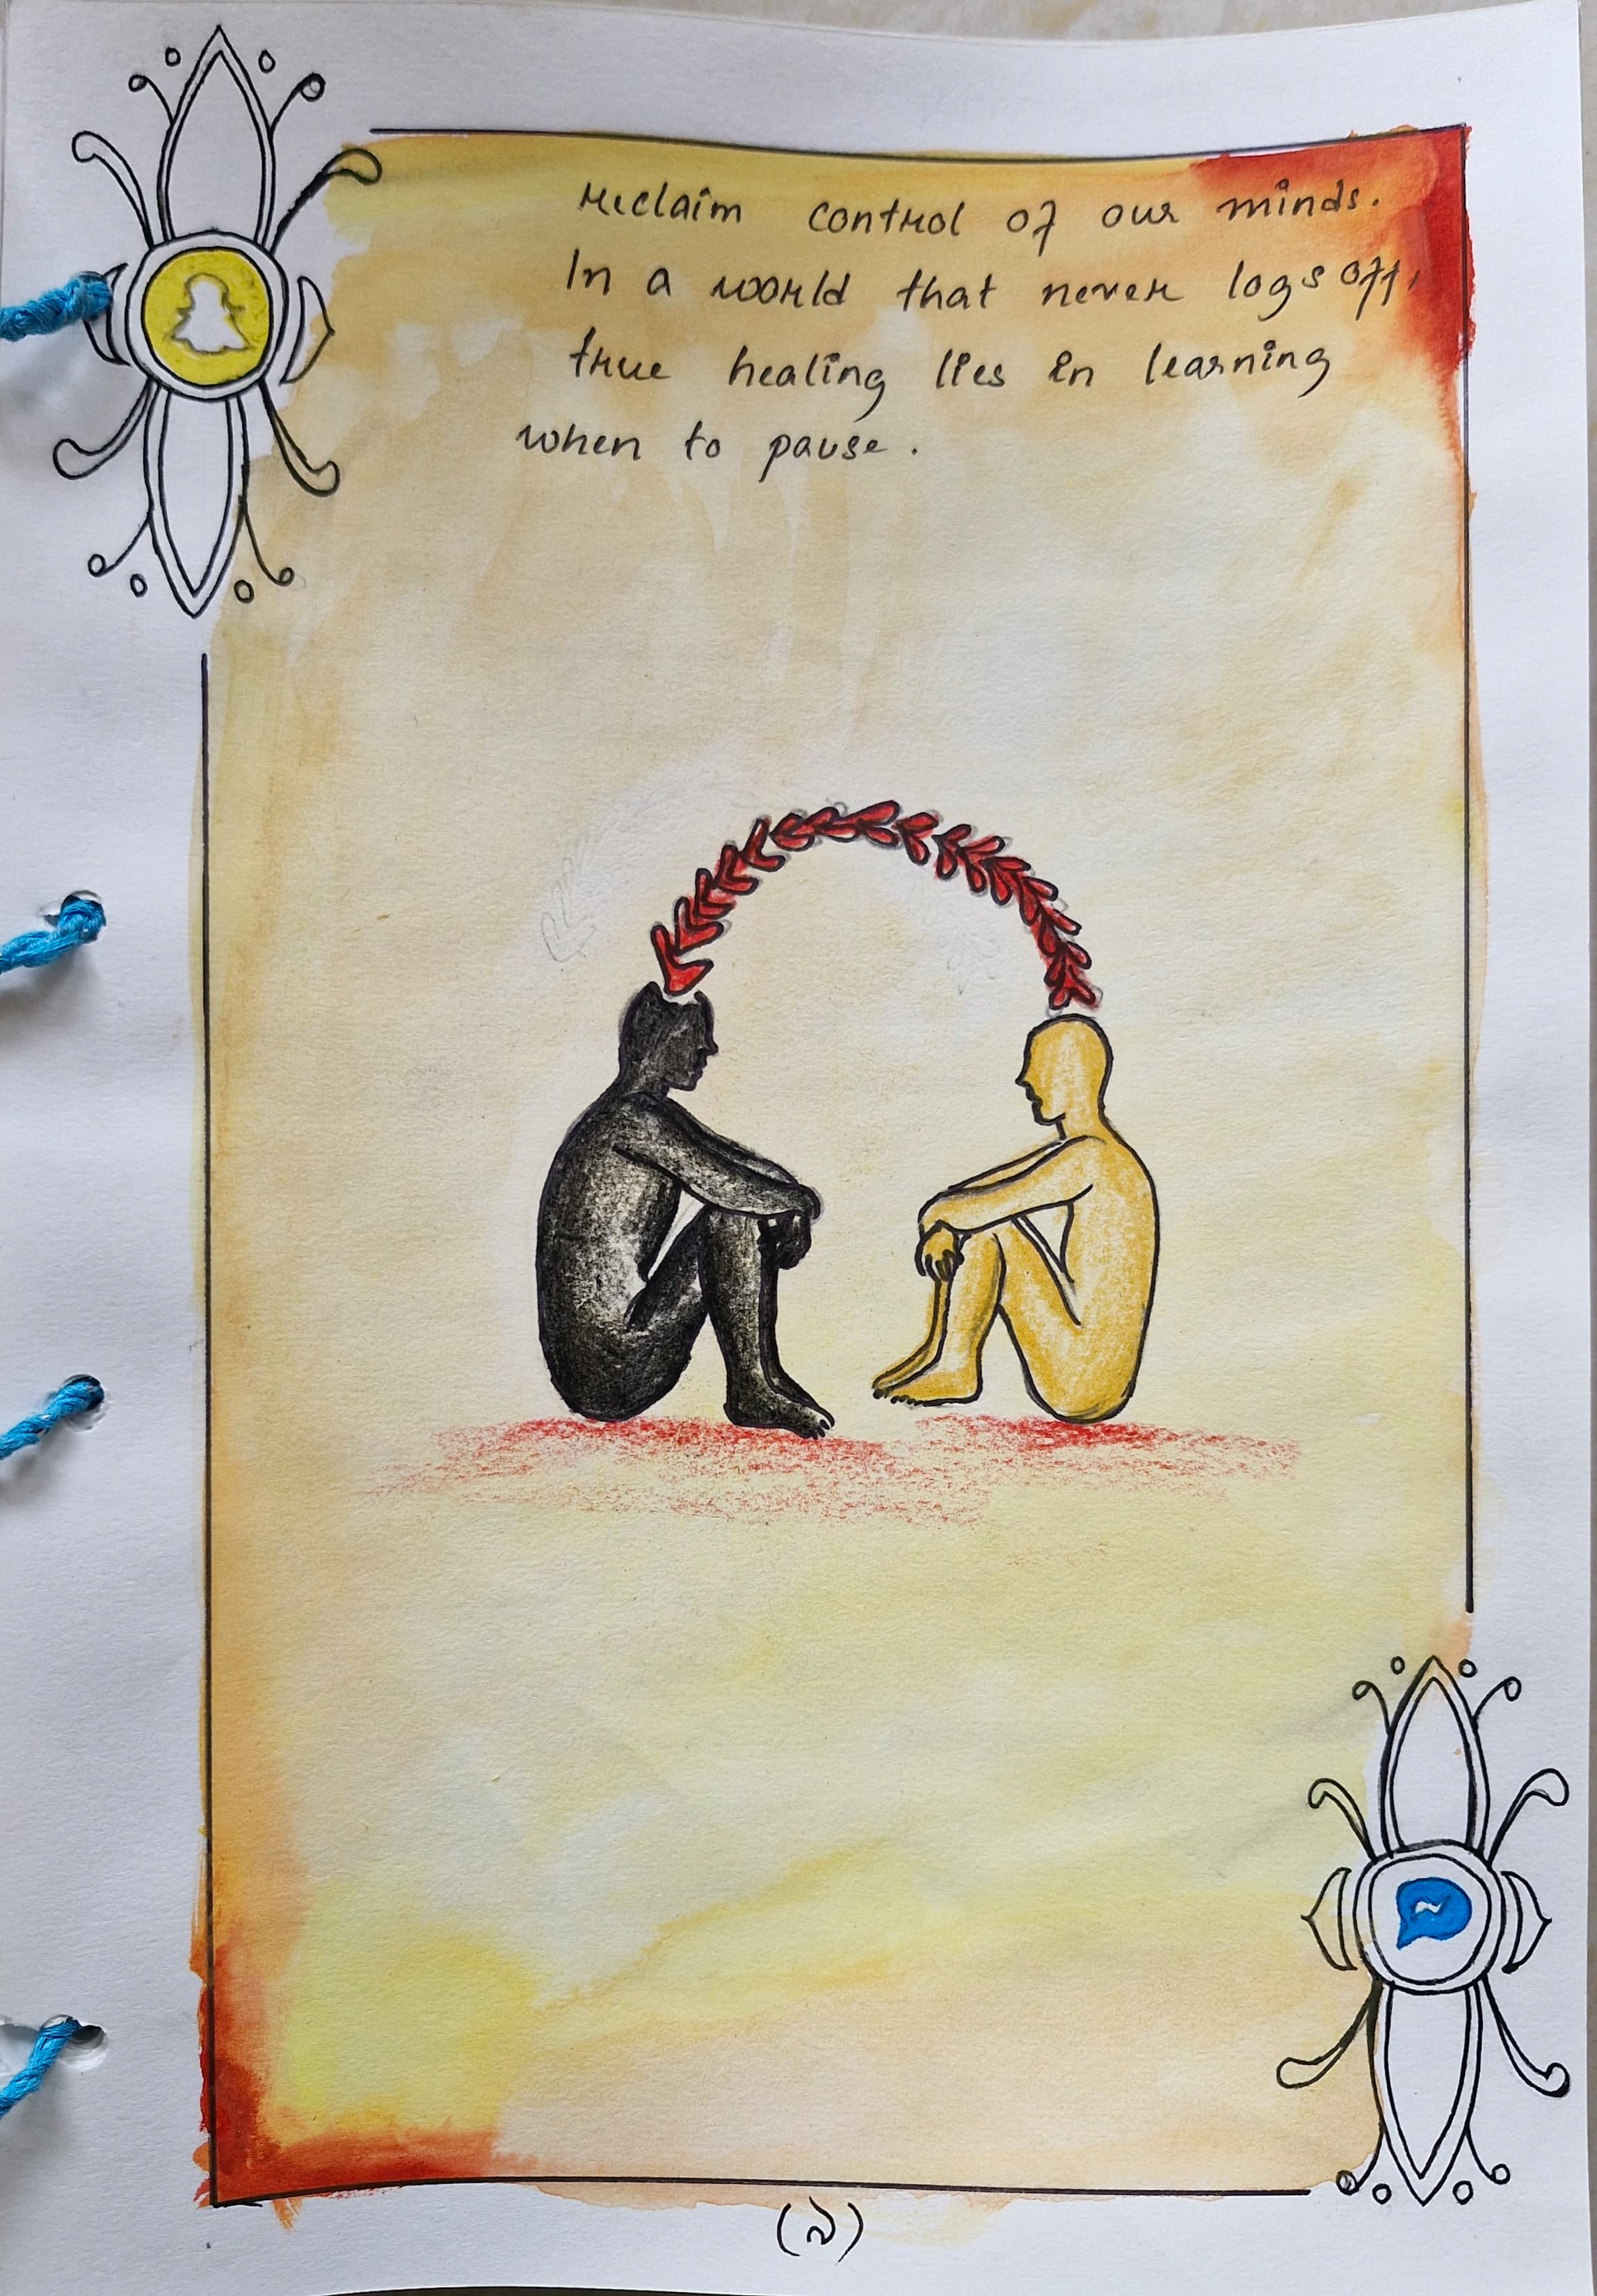 reclaim control of our minds.
In a world that never logs off,
true healing lies in learning
when to pause.
(৯)